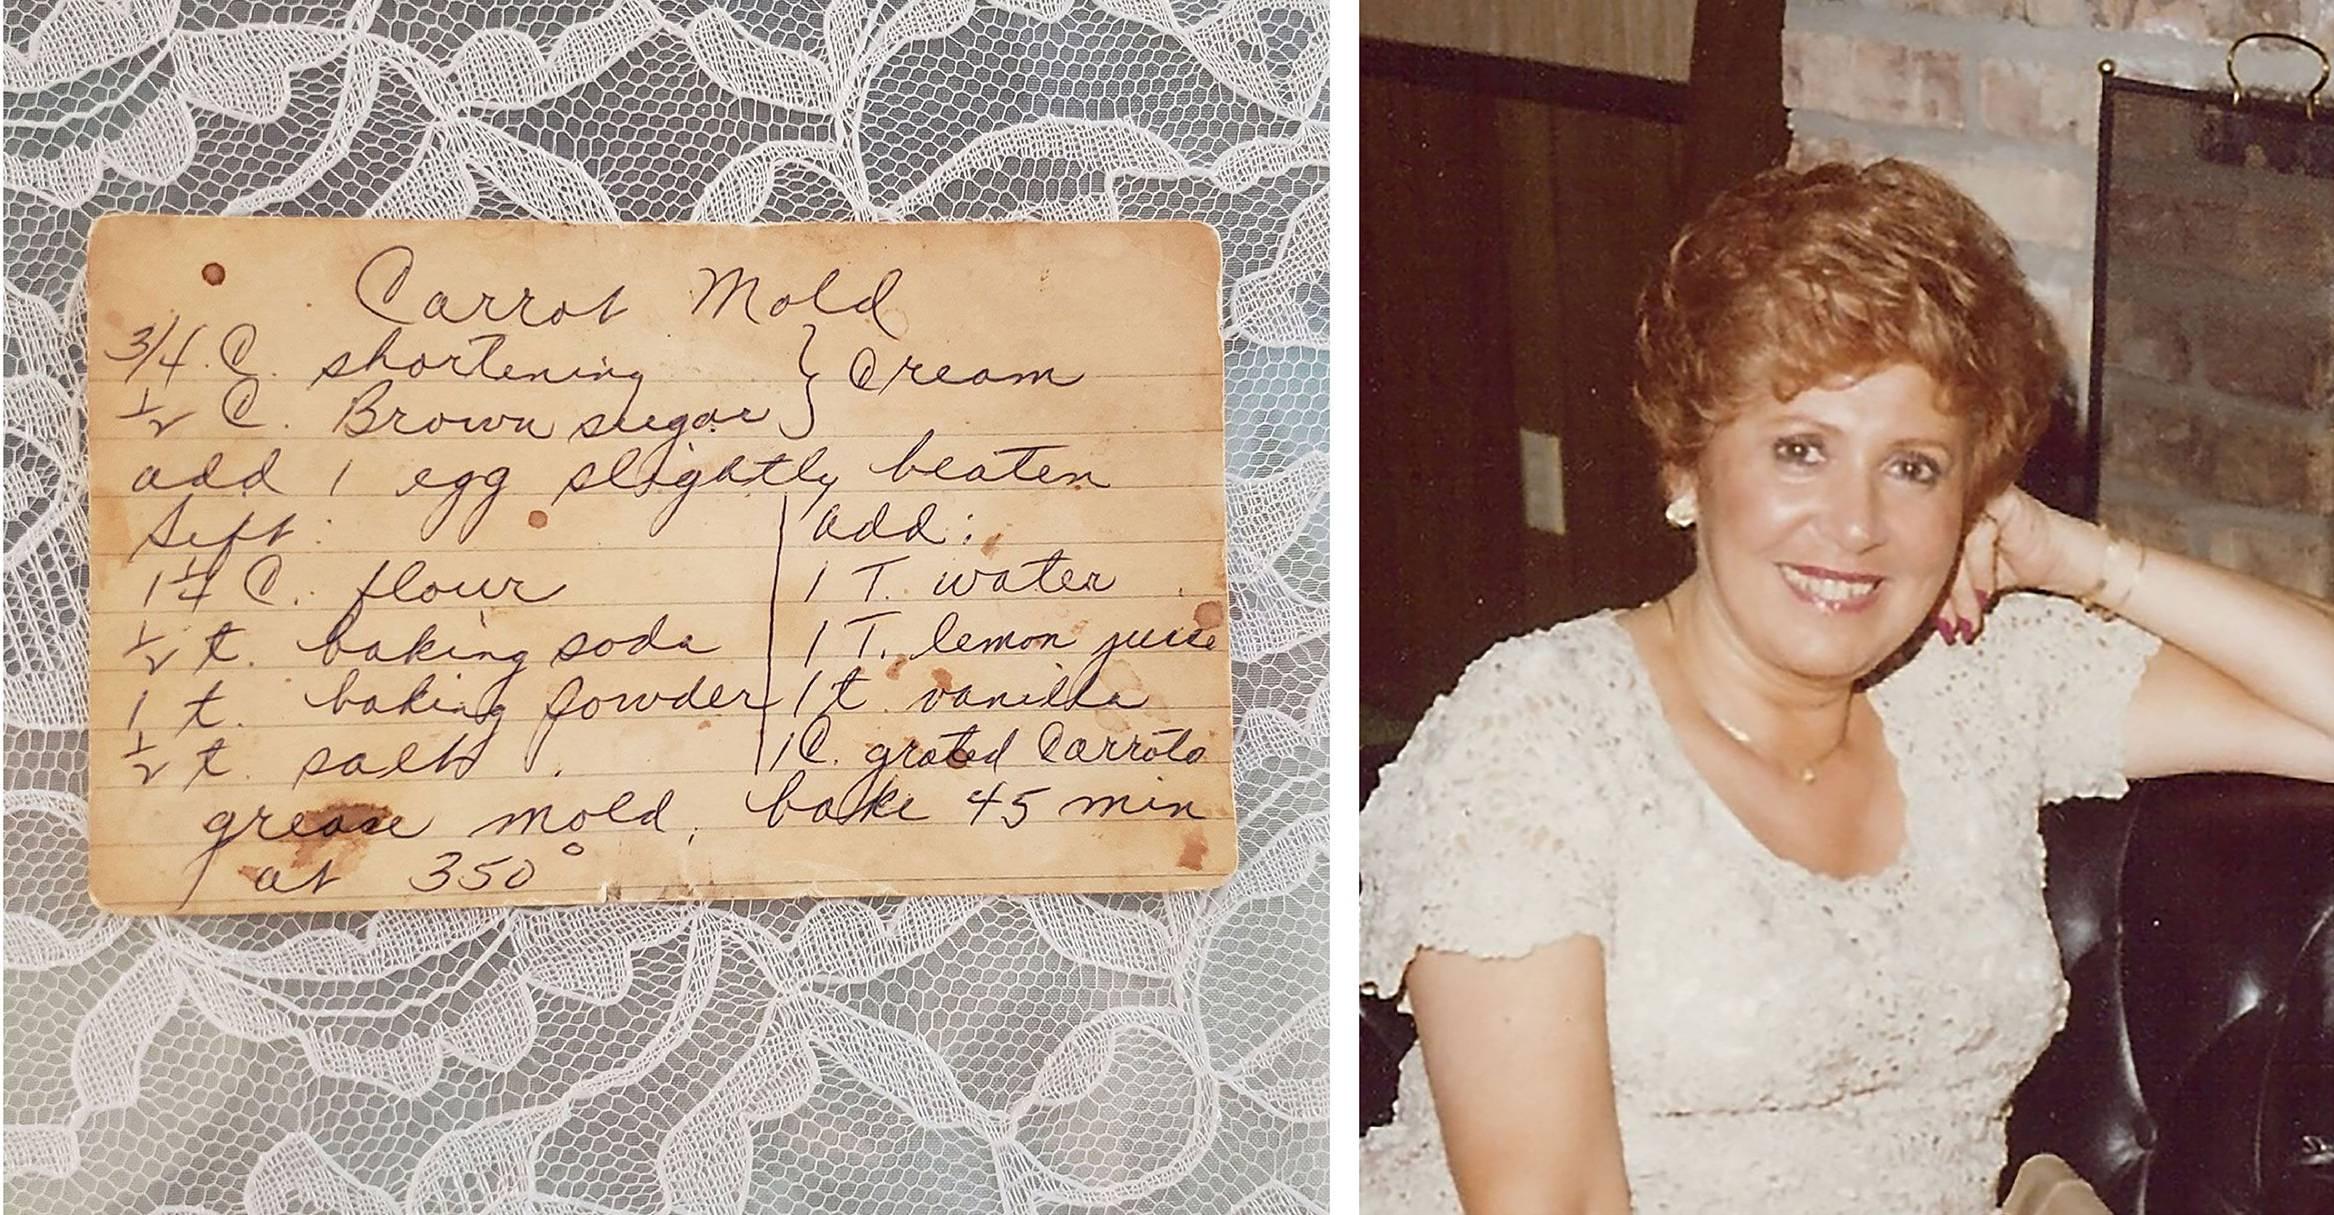 Carrot Mold
3/4 C. shortening } Cream
1/2 C. Brown sugar
add 1 egg slightly beaten
Sift:
1 1/4 C. flour
1/2 t. baking soda
1 t. baking powder
1/2 t. salt
add:
1 T. water
1 T. lemon juice
1 t. vanilla
1 C. grated Carrots
grease mold. bake 45 min
at 350°